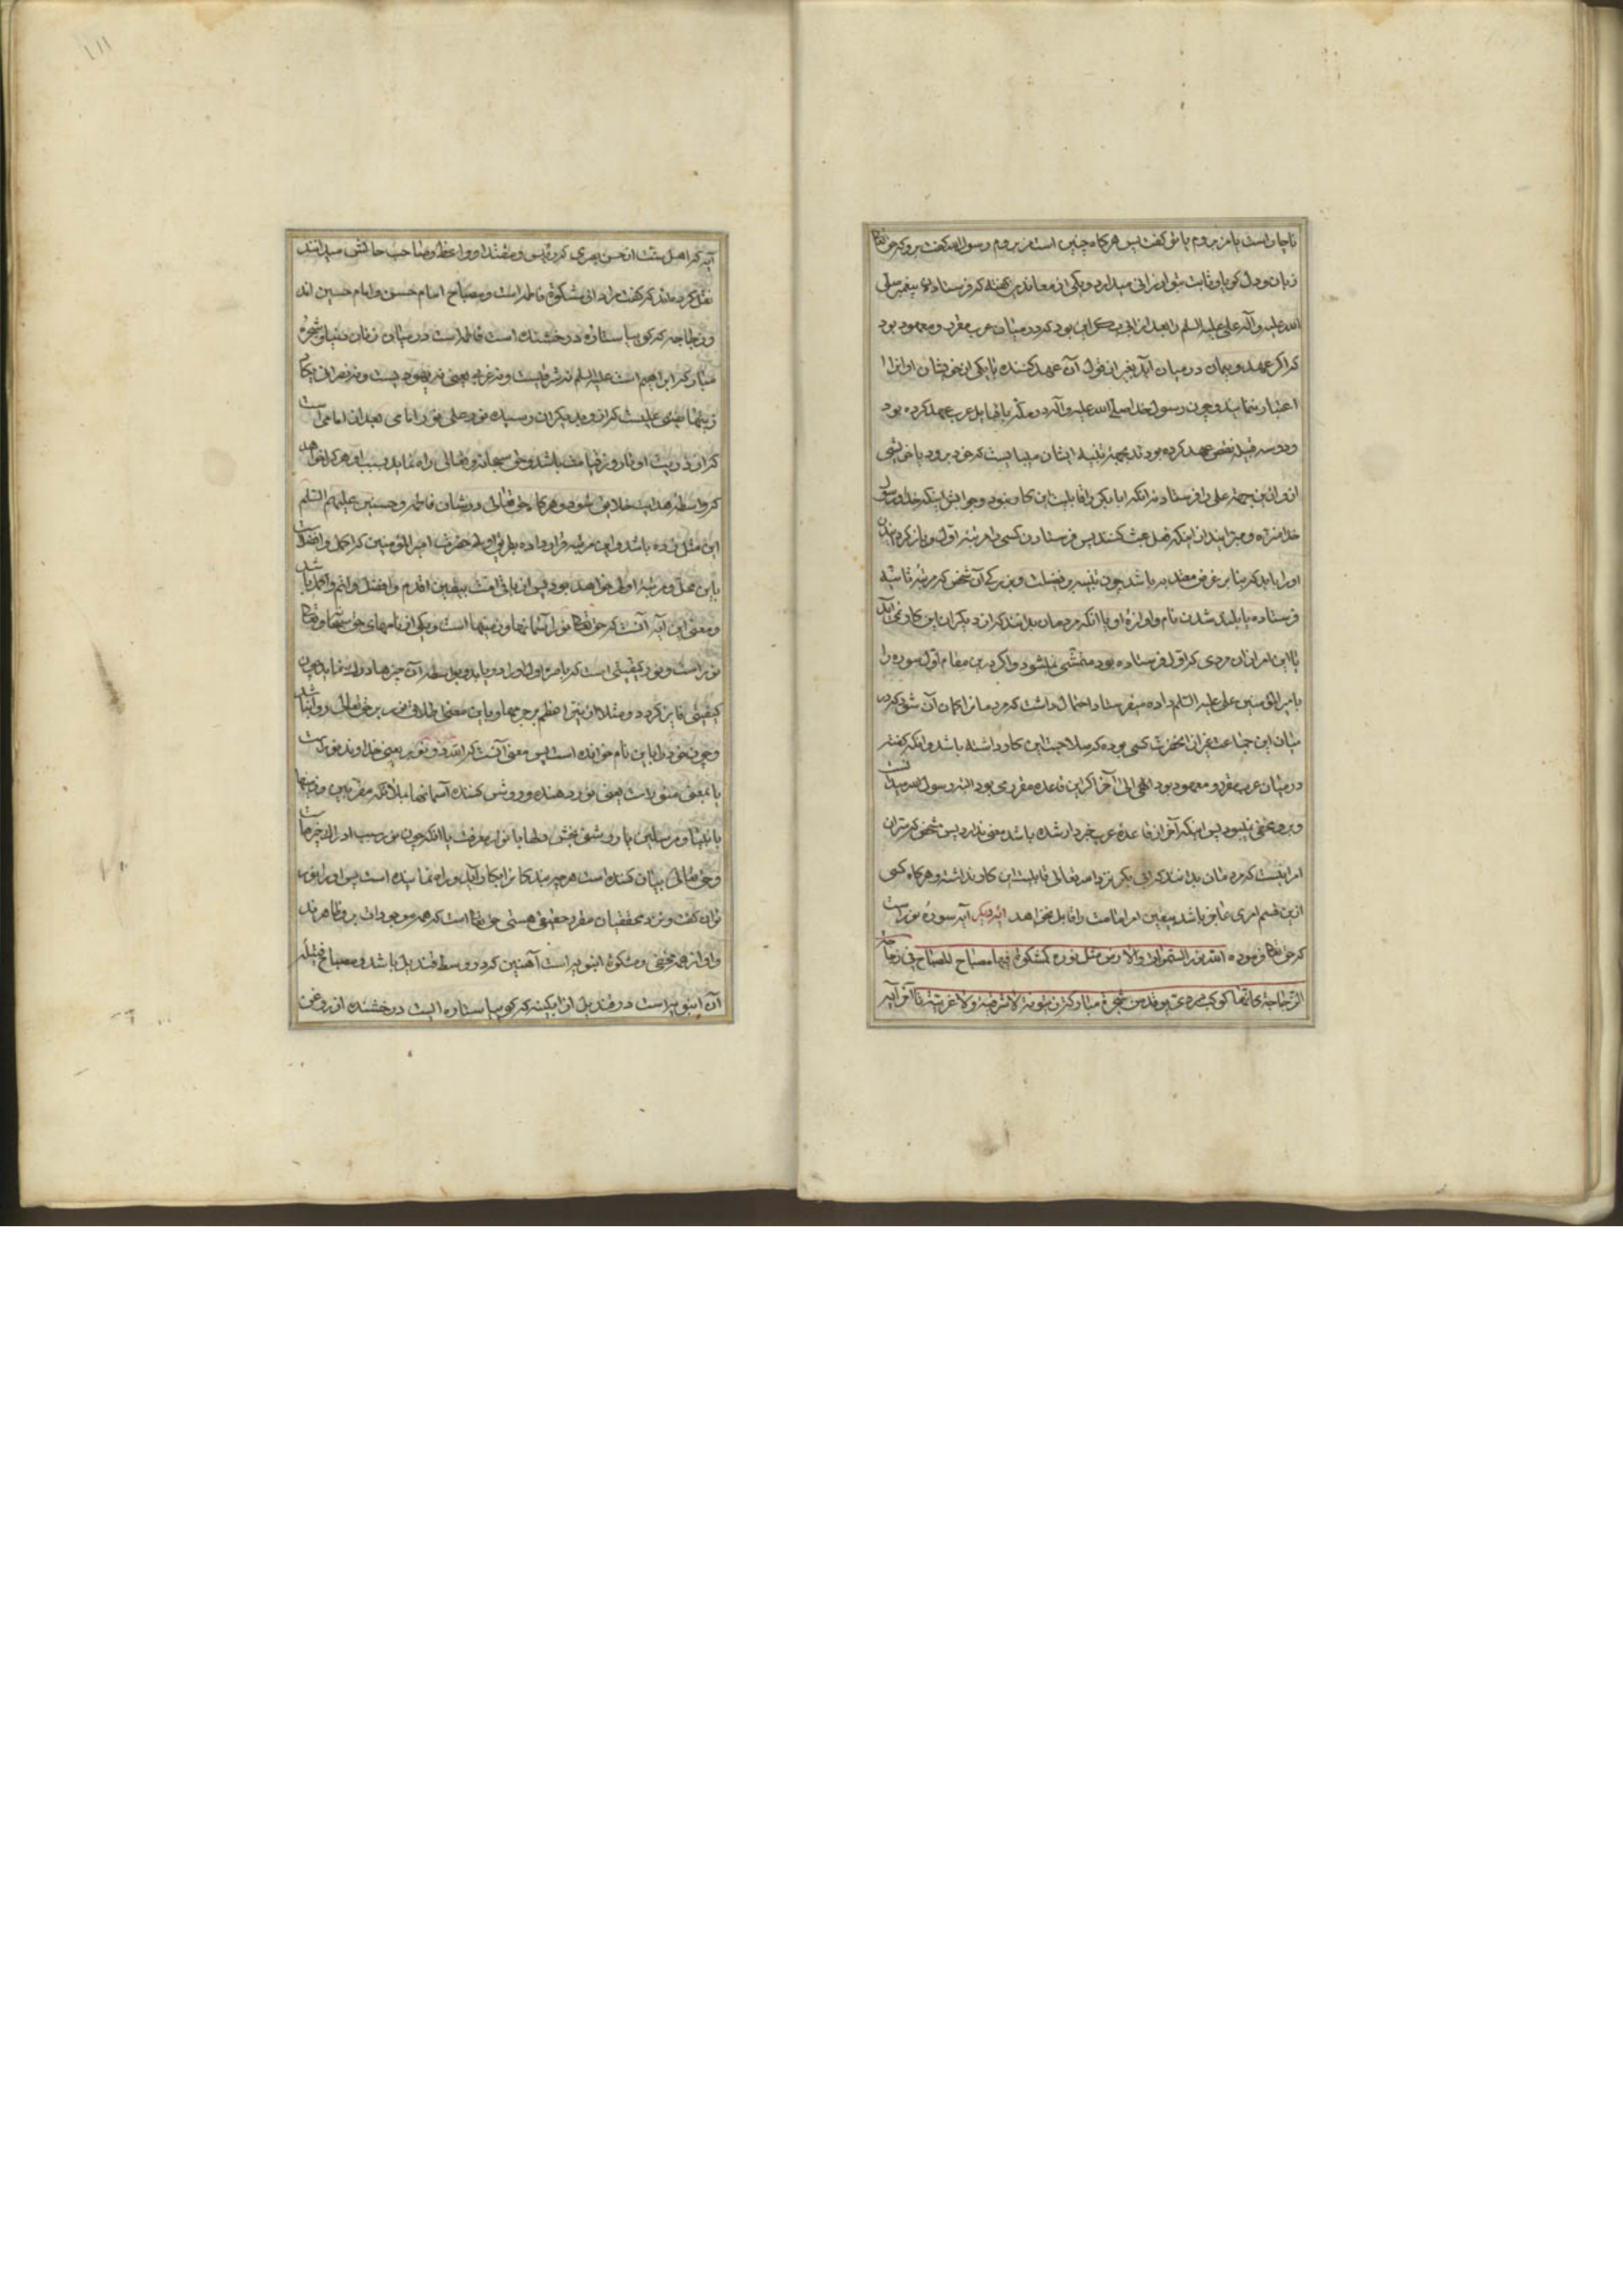 ناچار است یا من بروم یا تو گفت پس هرگاه چنین است من بروم رسول الله گفت برو که حق تعالی
زبان و دل تو را ثابت میدارد و یکی از معاندین گفته که فرستادن پیغمبر صلی
الله علیه و آله علی علیه السلم را بعد از ابی بکر این بود که در میان عرب مقرر و معهود بود
که اگر عهد و پیمان در میان آید بغیر از قول آن عهد کننده یا یکی از خویشان او انرا
اعتبار ننمایند و چون رسول خدا صلی الله علیه و آله در مکه با قبایل عرب عهد کرده بود
و دو سه قبیله نقض عهد کرده بودند بجهة تنبیه ایشان میبایست که خود برود یا خویشی
از و از این جهة علی را فرستاد نه انکه ابا بکر را قابلیت این کار نبود و جوابش اینکه خدا و رسول
خدا منزه و مبرّایند از اینکه فعل عبث کنند پس فرستادن کسی را مرتبه اول و باز گردانیدن
او را باید که بنا بر غرض معتد به باشد چون تنبیه بر فضیلت و بزرگی آن شخص که مرتبه ثانیه
فرستاده یا بلند شدن نام و اوازه او یا انکه مردمان بدانند که از دیگران این کار نمی آید
تا این امر از ان مردی که اول فرستاده بود متمشی نمیشود و اگر درین مقام اول سوره را
بامیر المؤمنین علی علیه السلم داده میفرستاد احتمال داشت که مردمانرا گمان آن شود که در
میان این جماعت غیر از انحضرت کسی بوده که صلاحیت این کار داشته باشد و انکه گفته
در میان عرب مقرر و معهود بود الخ اگر این قاعده مقرری بود البته رسول الله میدانست
و برو مخفی نمیبود پس اینکه آخر از قاعده عرب خبردار شده باشد معنی ندارد پس مشخص که سرّ آن
امر اینست که مردمان بدانند که ابی بکر نزد خدای تعالی قابلیت این کار نداشته و هرگاه کسی
ازین قسم امری عاجز باشد بیقین امر امامت را قابل نخواهد ایه دیگر آیه سورهٔ نور است
که حق تعالی فرموده الله نور السموات والارض مثل نوره کمشکوة فیها مصباح المصباح فی زجاجة
الزجاجة کانها کوکب دری یوقد من شجرة مبارکة زیتونة لا شرقیة ولا غربیة تا آخر آیه
آیه که اهل سنت از حسن بصری که رئیس و مقتدا و واعظ و صاحب حالش میدانند
نقل کرده‌اند که گفت مراد از مشکوة فاطمه است و مصباح امام حسن و امام حسین اند
و زجاجه که گویا ستاره درخشنده است فاطمه است در میان زنان دنیا و شجرهٔ
مبارکه ابراهیم است علیه السلم نه شرقیست و نه غربی یعنی نه یهودیست و نه نصرانی یکاد
زیتها یضیء علمیست که ازو بدیگران رسیده نور علی نور امامی بعد از امامی است
که از ذریت او تا روز قیامت باشد و حق سبحانه و تعالی راه نماید بسبب او هر کرا خواهد
که واسطه هدایت خلایق شود و هرگاه حق تعالی در شان فاطمه و حسنین علیهم السلم
این مثل زده باشد و این مرتبه قرار داده بطریق اولی حضرت امیر المؤمنین که اکمل و افضل است
باین محل و مرتبه اولی خواهد بود پس از باقی امت بیقین اقدم و افضل و اتم و اکمل باشد
و معنی این آیه آنست که حق تعالی نور آسمانها و زمینهاست و یکی از نامهای حق سبحانه و تعالی
نور است و نور کیفیتی است که باصره اول او را دریابد و بواسطه آن چیزها درک نماید چون
کیفیتی فایز گردد و مثلا از نیر اعظم بر جرمها و باین معنی اطلاق نور بر حق تعالی روا نباشد
و چون خود را باین نام خوانده است پس معنی آنست که الله ذو نور یعنی خداوند نور است
یا بمعنی منور است یعنی نور دهنده و روشن کننده آسمانها بملائکه مقربین و زمینها
بانبیا و مرسلین یا روشنی بخش دلها بانوار معرفت یا انکه چون نور سبب ادراک چیزهاست
و حق تعالی بیان کننده است هر چیز بندگانرا بکار آید و راه نماینده است پس او را نور
توان گفت و نزد محققان مقرر حقیقی هستی حق تعالی است که همه موجودات برو ظاهرند
و او از همه مخفی و مشکوة انبوبه است آهنین که در وسط قندیل باشد و مصباح فتیله
آن انبوبه است در قندیل از ابگینه که گویا ستاره ایست درخشنده از روغن